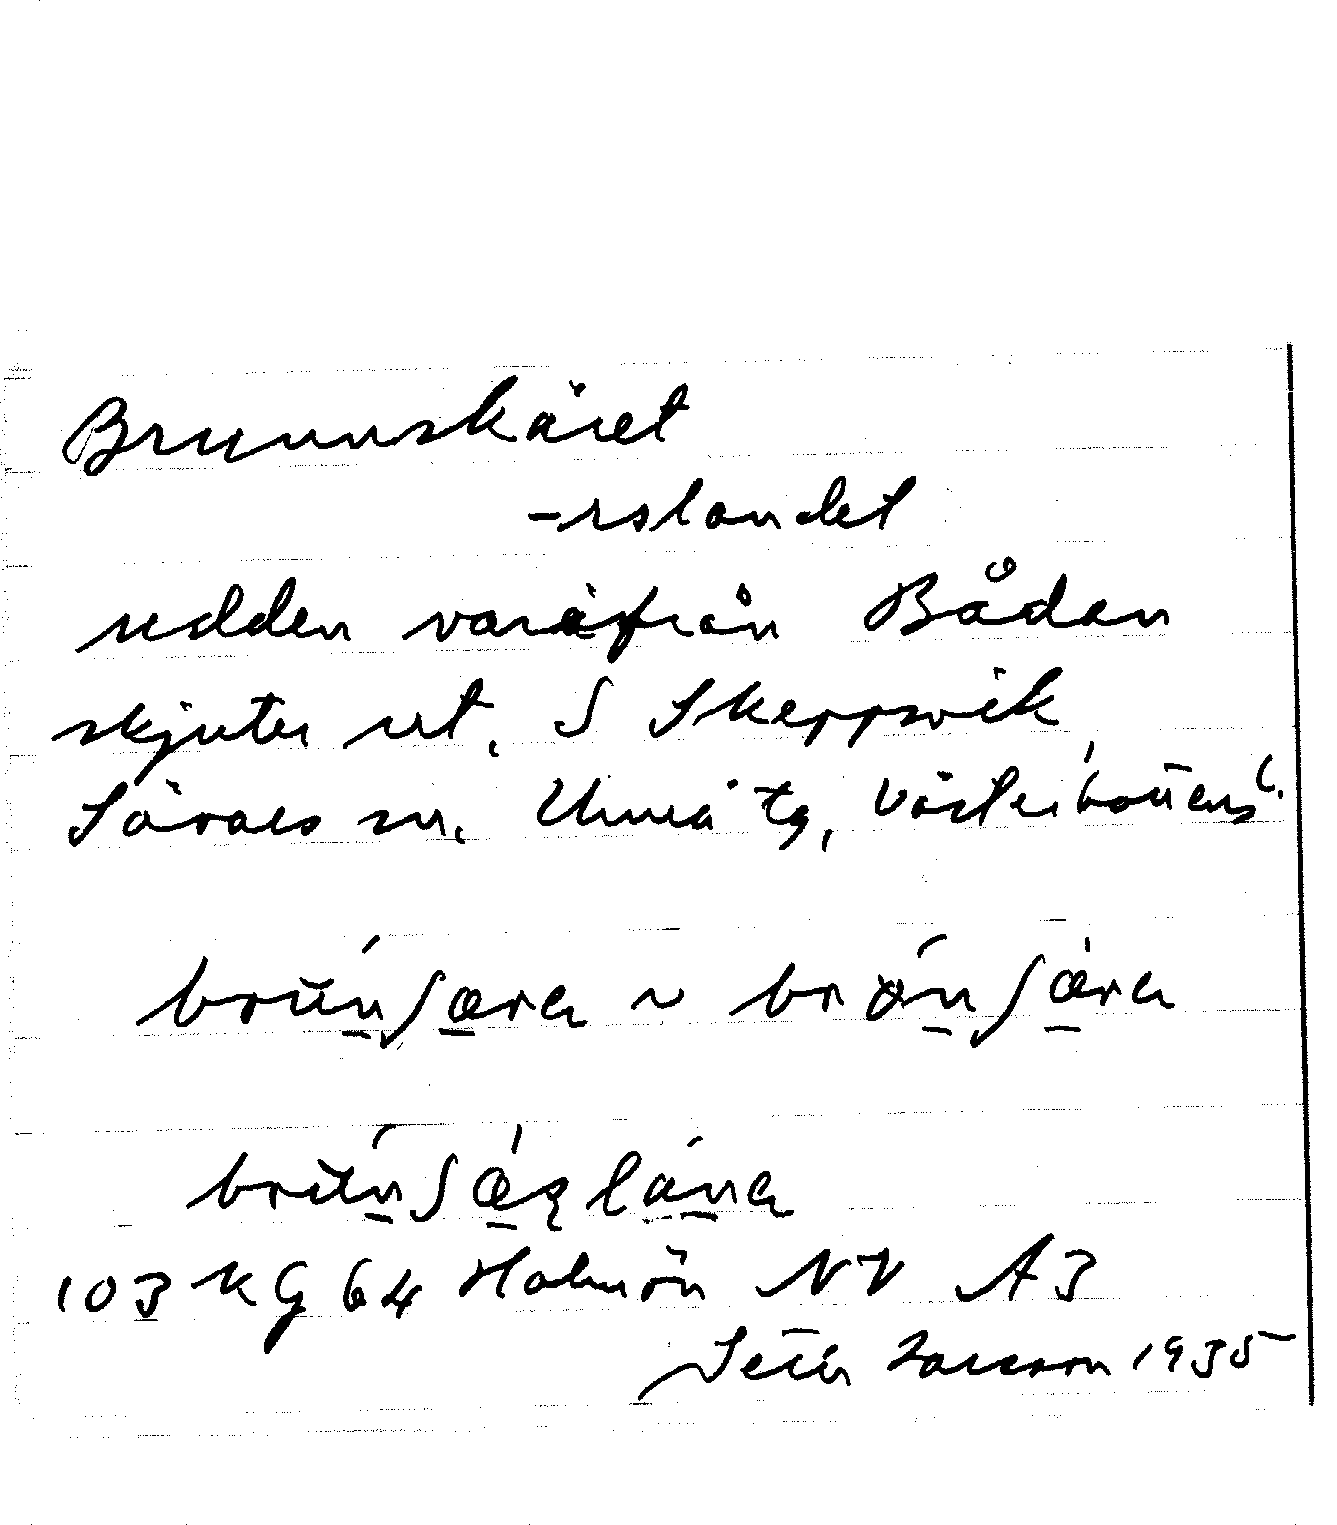 Brunnskäret
-rslandet
udden varifrån Bådan
skjuter ut. S Skeppsvik
Sävars sn. Umeå tg, Västerbottens l.
brúnʃæra ~ brǿnʃæ̀ra
brúnʃæ̀ṣlána
103 KG 64 Holmön NV A3
1935